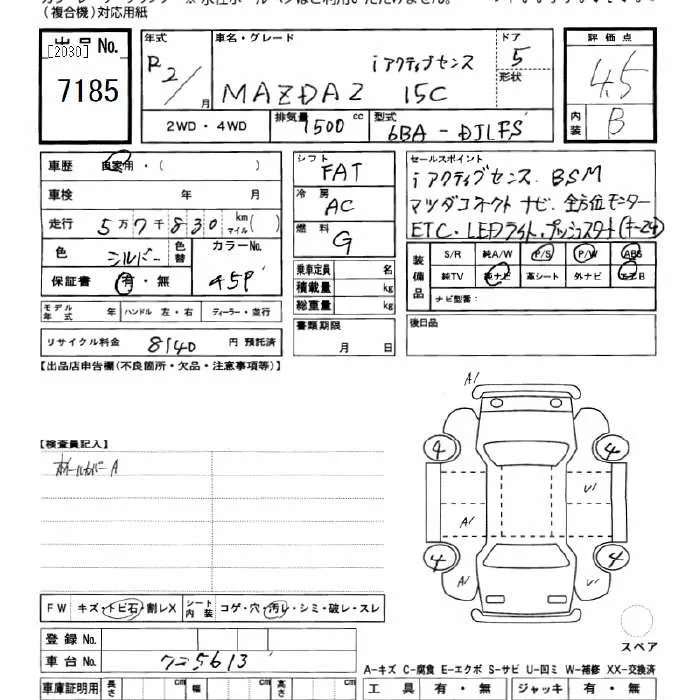 (複合機)対応用紙
出品 No.
[2030]
7185
年式
R2/
月
車名・グレード
iアクティブセンス
MAZDA2 15C
ドア
5
形状
評価点
4.5
内装
B
2WD・4WD
排気量
1500 cc
型式
6BA-DJLFS
車歴
自家用・( )
車検 年 月
走行 5万7千830 km マイル( )
色 シルバー 色替
カラーNo.
45P
保証書 有・無
モデル年式 年 ハンドル 左・右 ディーラー・並行
リサイクル料金 8140 円 預託済
シフト
FAT
冷房
AC
燃料
G
乗車定員 名
積載量 kg
総重量 kg
書類期限
月 日
セールスポイント
iアクティブセンス. BSM
マツダコネクト ナビ. 全方位モニター
ETC. LEDライト. プッシュスタート(キー2ケ)
装備品
S/R 純A/W P/S P/W ABS
純TV 純ナビ 革シート 外ナビ エアB
ナビ型番:
後日品
【出品店申告欄(不良箇所・欠品・注意事項等)】
【検査員記入】
ホイールカバー A
A1
4
4
U1
A1
U1
4
4
A1
スペア
FW キズ・トビ石・割レX シート内装 コゲ・穴・汚レ・シミ・破レ・スレ
登録 No.
車台 No. 725613
A-キズ C-腐食 E-エクボ S-サビ U-凹ミ W-補修 XX-交換済
車庫証明用 長さ cm 幅 cm 高さ cm
工具 有・無 ジャッキ 有・無